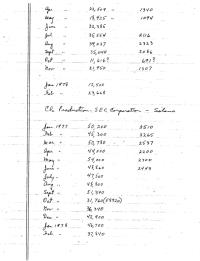 Apr " 22,504 - 1340
May " 18,925 - 1094
June " 32,386
Jul " 35,554 2016
Aug " 39,027 2323
Sept " 35,044 2086
Oct " 11,616? 691?
Nov " 21,950 1307
Jan 1978 12,500
Feb " 23,668
Cl2 Production, SEC Corporation -
Jan 1977 50,200 3510
Feb " 46,300 3265
Mar " 50,780 2537
Apr " 44,000 2200
May " 54,000 2700
June " 48,860 2443
July " 47,500
Aug " 48,800
Sept " 51,400
Oct " 31,760
Nov " 36,340
Dec " 42,900
Jan 1978 40,700
Feb " 37,740